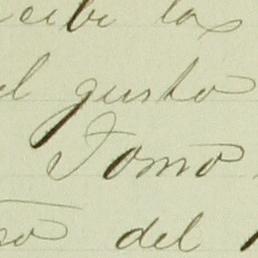 recibe las
el gusto
Tomo
so del